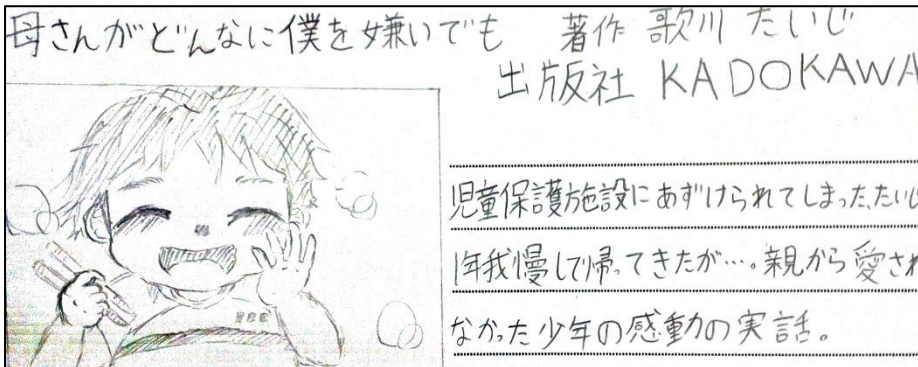 母さんがどんなに僕を嫌いでも 著作 歌川 たいじ
出版社 KADOKAWA
児童保護施設にあずけられてしまった、たいじ
1年我慢して帰ってきたが…。親から愛され
なかった少年の感動の実話。